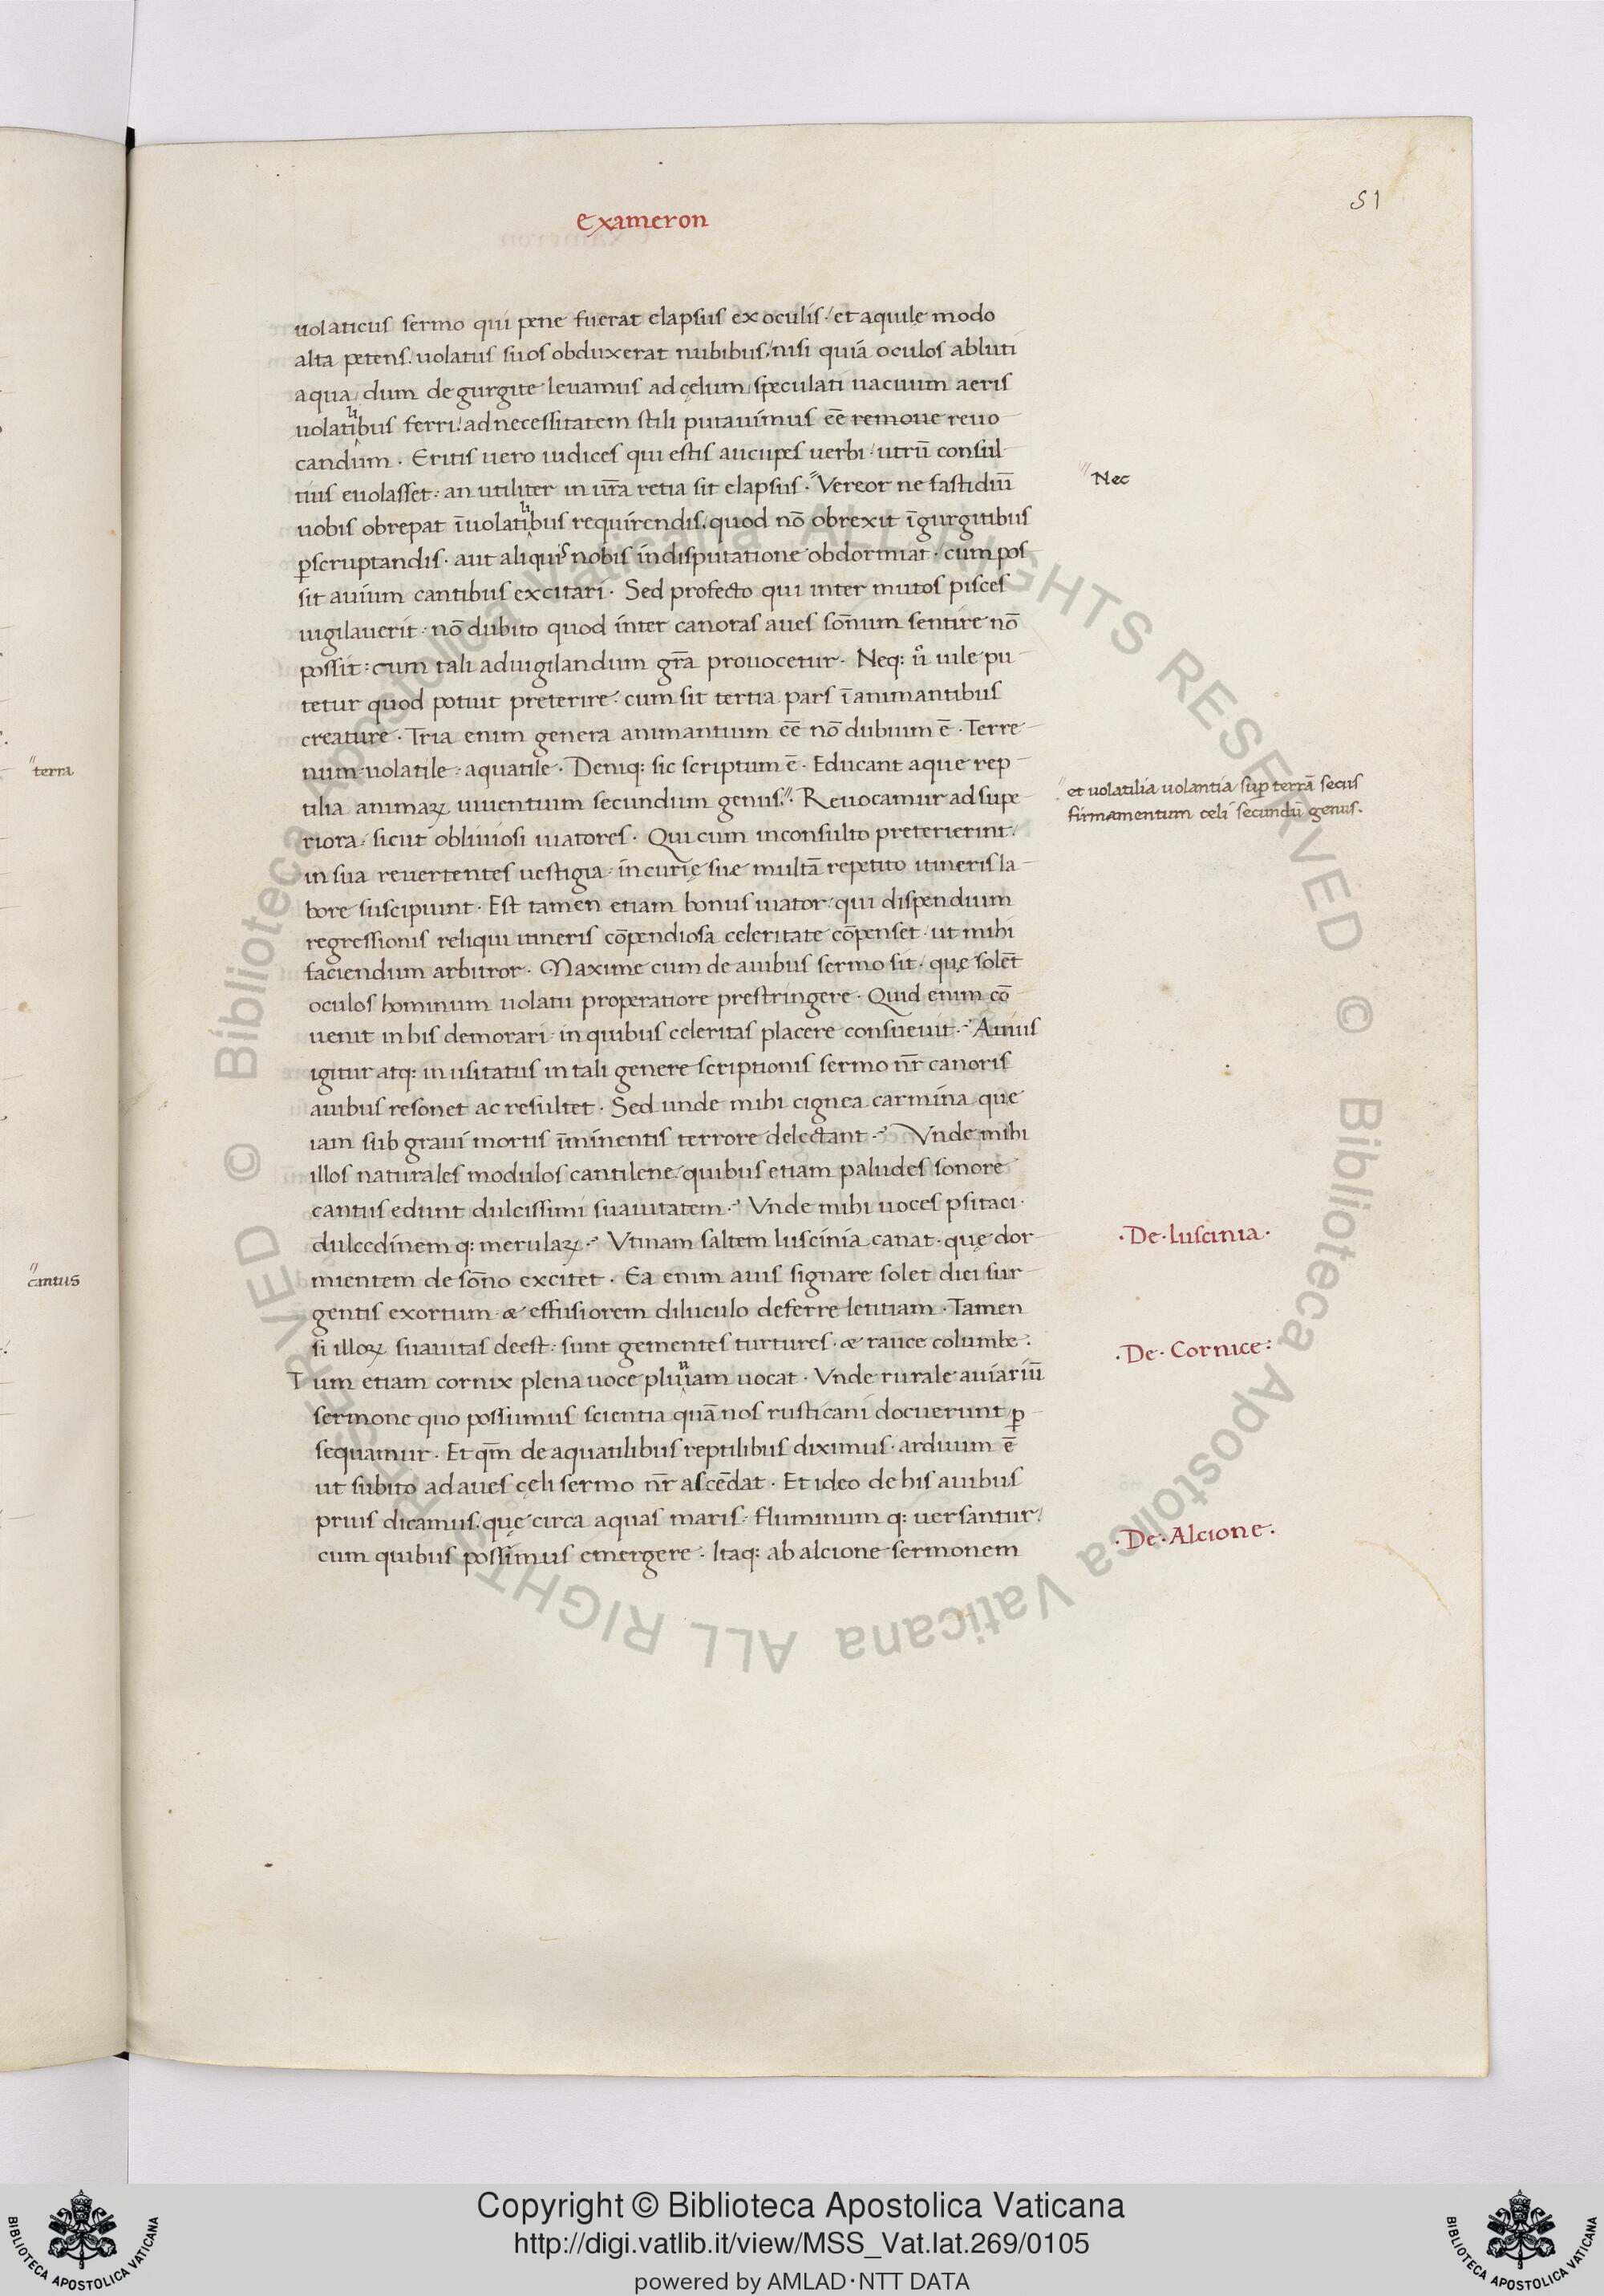 51
Exameron
uolaticus sermo qui pene fuerat elapsus ex oculis / et aquilę modo
alta petens . uolatus suos obduxerat nubibus / nisi quia oculos abluti
aqua / dum de gurgite leuamus ad cęlum / speculati uacuum aeris
uolatiubus ferri / ad necessitatem stili putauimus eē remoue reuo
candum . Eritis uero iudices qui estis aucupes uerbi / utrū consul
tius euolasset : an utiliter in ur̄a retia sit elapsus . " Vereor ne fastidiū
" Nec
uobis obrepat ī uolatiubus requirendis / quod nō obrexit ī gurgitibus
ꝑscruptandis . aut aliquis nobis in disputatione obdormiat . cum pos
sit auium cantibus excitari . Sed profecto qui inter mutos pisces
uigilauerit : nō dubito quod inter canoras aues sōnum sentire nō
possit : cum tali ad uigilandum gr̄a prouocetur . Neq: uͦ uile pu
tetur quod potuit preterire / cum sit tertia pars ī animantibus
creature . Tria enim genera animantium eē nō dubium ē . Terre
num : uolatile : aquatile . Deniq: sic scriptum ē . Educant aque rep
tilia animaꝝ uiuentium secundum genus " . Reuocamur ad supe
" et uolatilia uolantia suꝑ terrā secus
firmamentum celi secundū genus .
riora / sicut obliuiosi uiatores . Qui cum inconsulto preterierint /
in sua reuertentes uestigia : incurię suę multā repetito itineris la
bore suscipiunt . Est tamen etiam bonus uiator / qui dispendium
regressionis reliqui itineris cōpendiosa celeritate cōpenset / ut mihi
faciendum arbitror . Maxime cum de auibus sermo sit / quę solēt
oculos hominum uolatu properatiore prestringere . Quid enim cō
uenit in his demorari / in quibus celeritas placere consueuit ? Auius
igitur atq: inusitatus in tali genere scriptionis sermo nr̄ canoris
auibus resonet ac resultet . Sed unde mihi cignea carmina que
iam sub graui mortis īminentis terrore delectant ? Vnde mihi
illos naturales modulos cantilene / quibus etiam paludes sonore
cantus edunt dulcissimi suauitatem ? Vnde mihi uoces psitaci .
dulcedinem q: merulaꝝ ? Vtinam saltem luscinia canat . quę dor
· De · luscinia ·
mientem de sōno excitet . Ea enim auis signare solet diei sur
gentis exortum . & effusiorem diluculo deferre letitiam . Tamen
si illoꝝ suauitas deest : sunt gementes turtures . & rauce columbe .
· De · Cornice :
Tum etiam cornix plena uoce pluuiam uocat . Vnde rurale auiariū
sermone quo possumus scientia quā nos rusticani docuerunt ꝑ
sequamur . Et qm̄ de aquatilibus reptilibus diximus . arduum ē
ut subito ad aues cęli sermo nr̄ ascēdat . Et ideo de his auibus
prius dicamus / quę circa aquas maris : fluminum q: uersantur /
· De · Alcione ·
cum quibus possimus emergere . Itaq: ab alcione sermonem
" terra
" cantus
© Biblioteca Apostolica Vaticana ALL RIGHTS RESERVED © Biblioteca Apostolica Vaticana ALL RIGHTS RESERVED
Copyright © Biblioteca Apostolica Vaticana
http://digi.vatlib.it/view/MSS_Vat.lat.269/0105
powered by AMLAD·NTT DATA
BIBLIOTECA APOSTOLICA VATICANA
BIBLIOTECA APOSTOLICA VATICANA